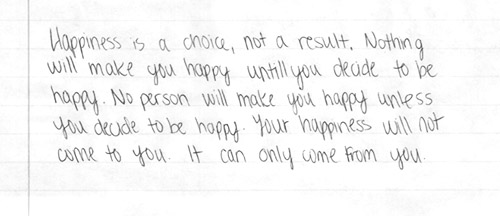 Happiness is a choice, not a result. Nothing
will make you happy untill you decide to be
happy. No person will make you happy unless
you decide to be happy. Your happiness will not
come to you. It can only come from you.